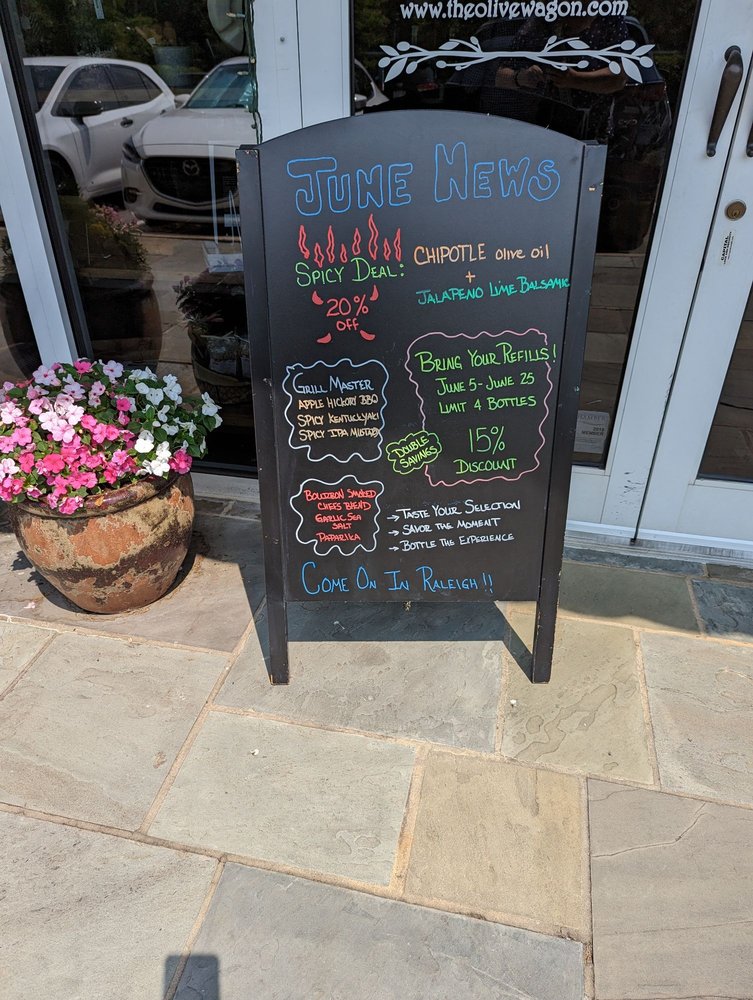 www.theolivewagon.com
JUNE NEWS
SPICY DEAL:
20%
OFF
CHIPOTLE olive oil
+
JALAPENO LIME BALSAMIC
GRILL MASTER
APPLE HICKORY BBQ
SPICY KENTUCKYAKI
SPICY IPA MUSTARD
BRING YOUR REFILLS!
JUNE 5 - JUNE 25
LIMIT 4 BOTTLES
15%
DISCOUNT
DOUBLE
SAVINGS
BOURBON SMOKED
CHEFS BLEND
GARLIC SEA
SALT
PAPARIKA
→ TASTE YOUR SELECTION
→ SAVOR THE MOMENT
→ BOTTLE THE EXPERIENCE
COME ON IN RALEIGH!!